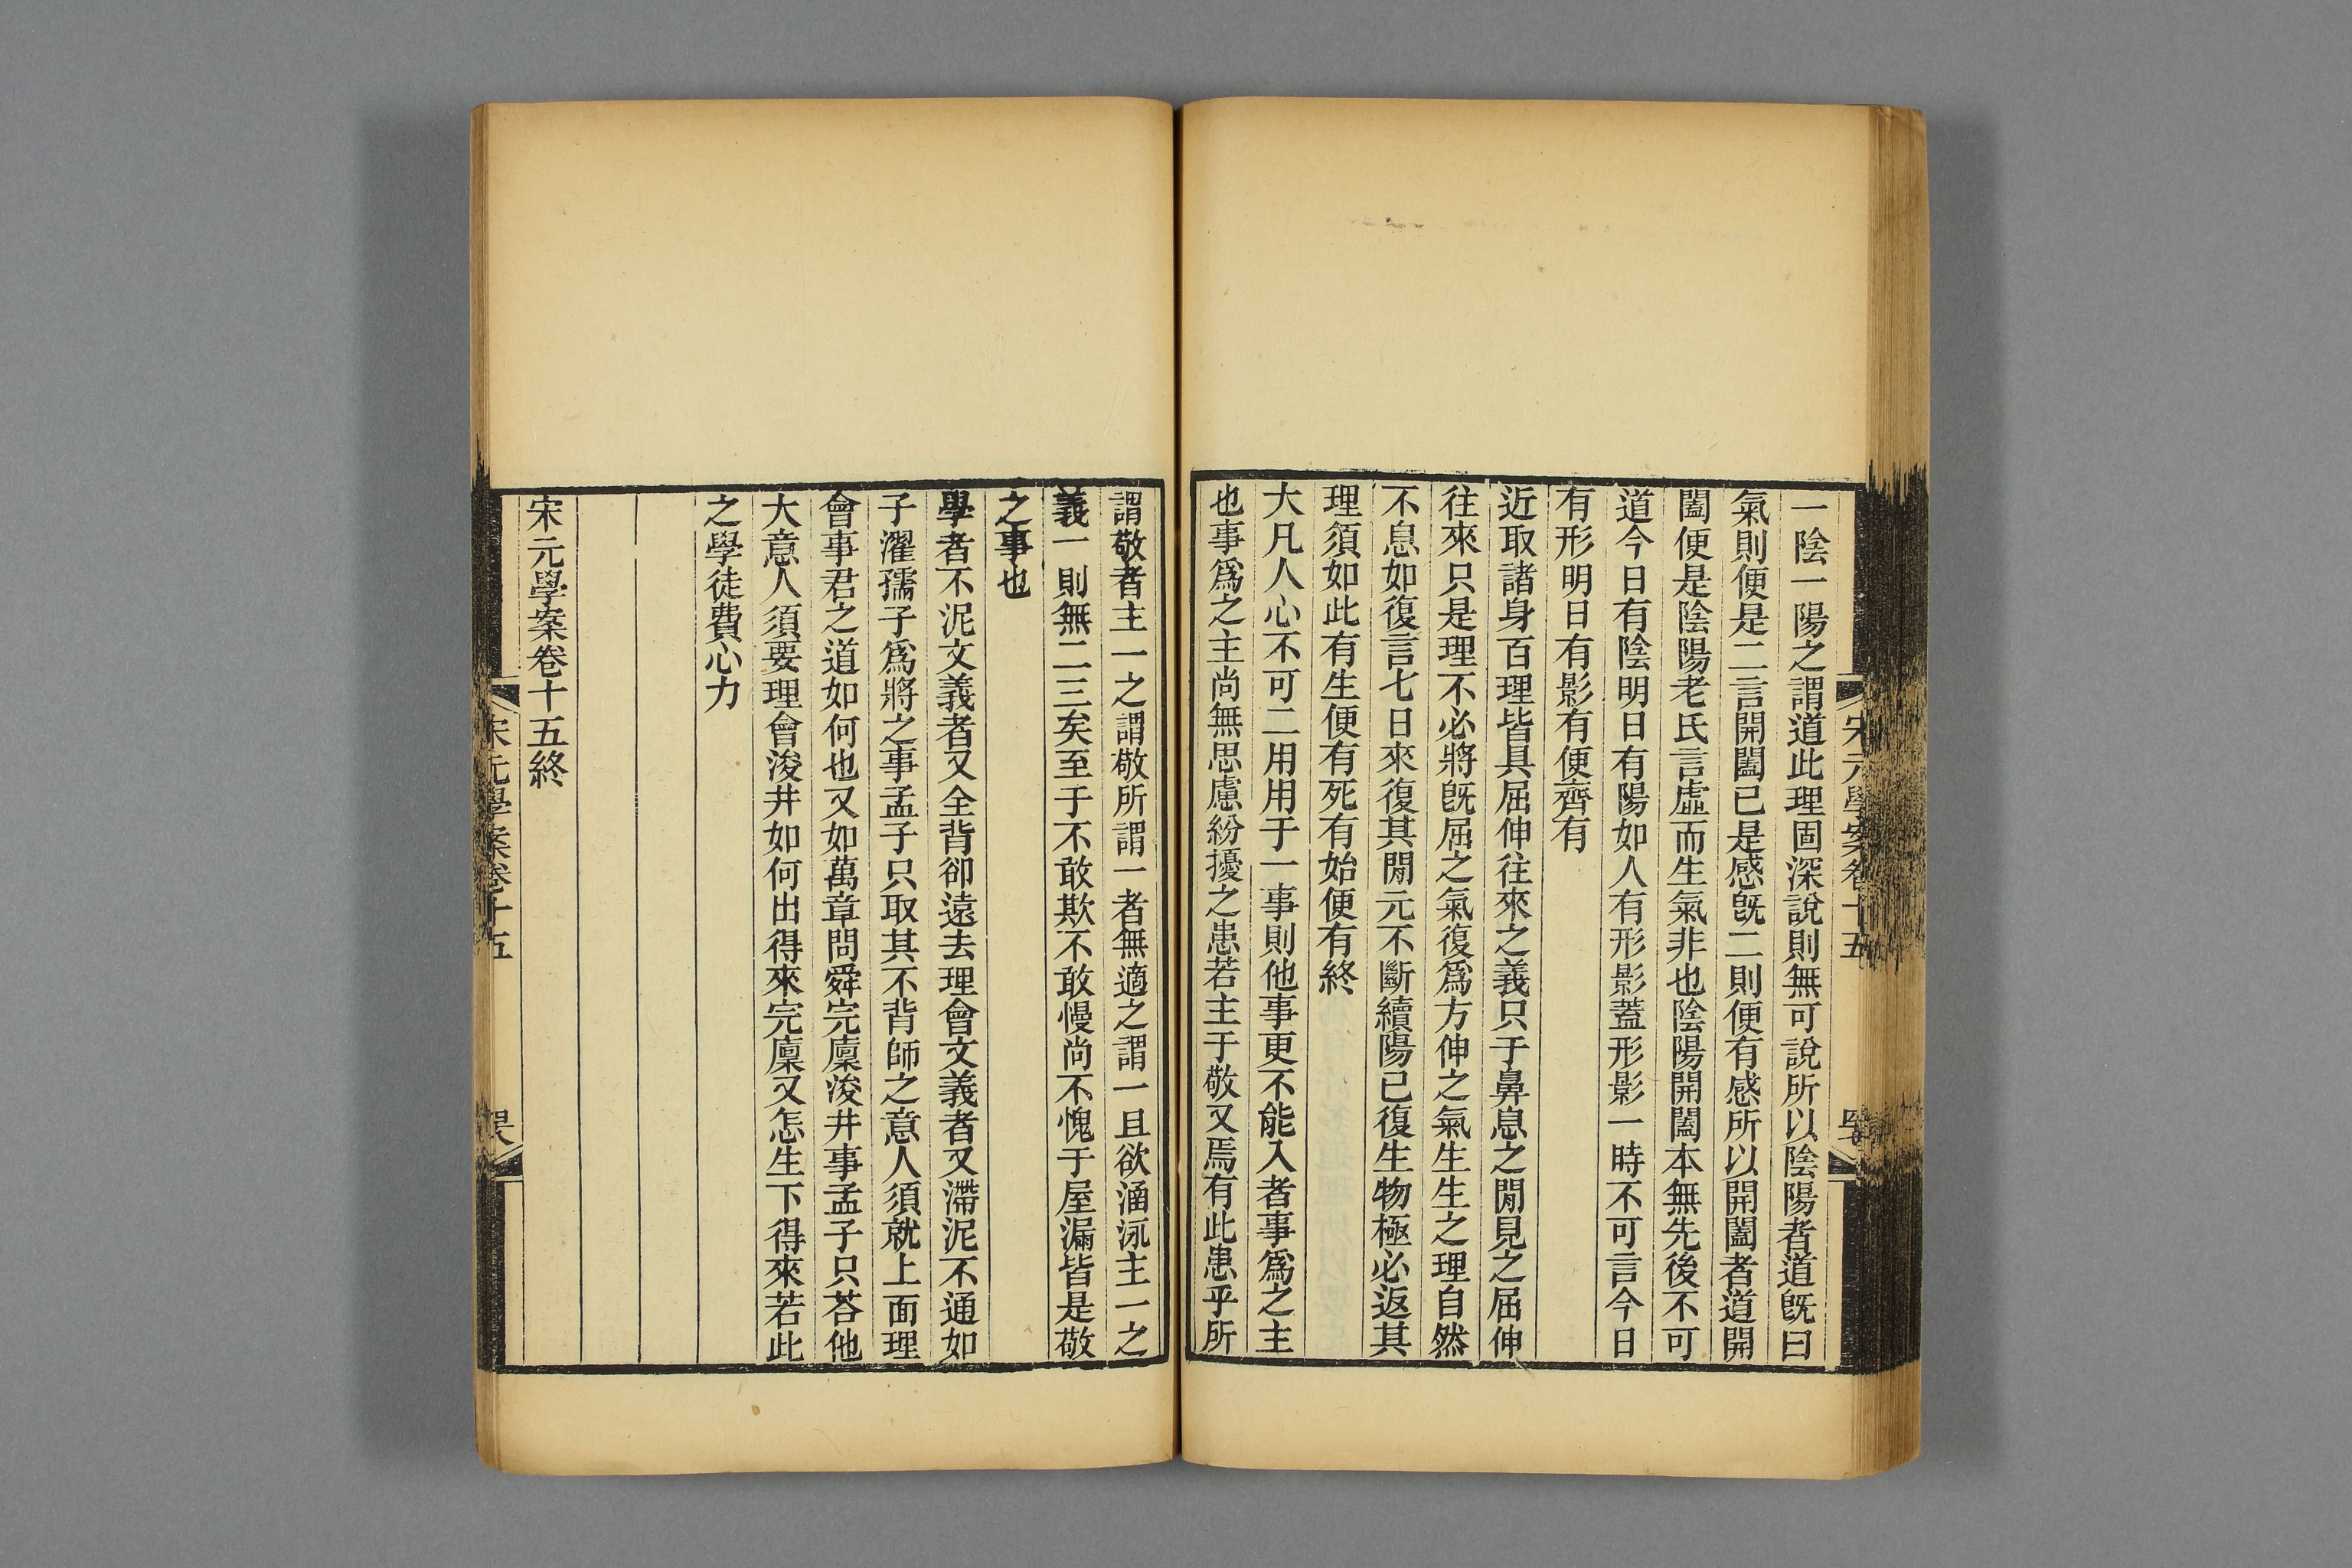 一陰一陽之謂道此理固深說則無可說所以陰陽者道旣曰
氣則便是二言開闔已是感旣二則便有感所以開闔者道開
闔便是陰陽老氏言虛而生氣非也陰陽開闔本無先後不可
道今日有陰明日有陽如人有形影蓋形影一時不可言今日
有形明日有影有便齊有
近取諸身百理皆具屈伸往來之義只于鼻息之閒見之屈伸
往來只是理不必將旣屈之氣復爲方伸之氣生生之理自然
不息如復言七日來復其閒元不斷續陽已復生物極必返其
理須如此有生便有死有始便有終
大凡人心不可二用用于一事則他事更不能入者事爲之主
也事爲之主尚無思慮紛擾之患若主于敬又焉有此患乎所
謂敬者主一之謂敬所謂一者無適之謂一且欲涵泳主一之
義一則無二三矣至于不敢欺不敢慢尚不愧于屋漏皆是敬
之事也
學者不泥文義者又全背卻遠去理會文義者又滯泥不通如
子濯孺子爲將之事孟子只取其不背師之意人須就上面理
會事君之道如何也又如萬章問舜完廩浚井事孟子只荅他
大意人須要理會浚井如何出得來完廩又怎生下得來若此
之學徒費心力
宋元學案卷十五終
宋元學案卷十五